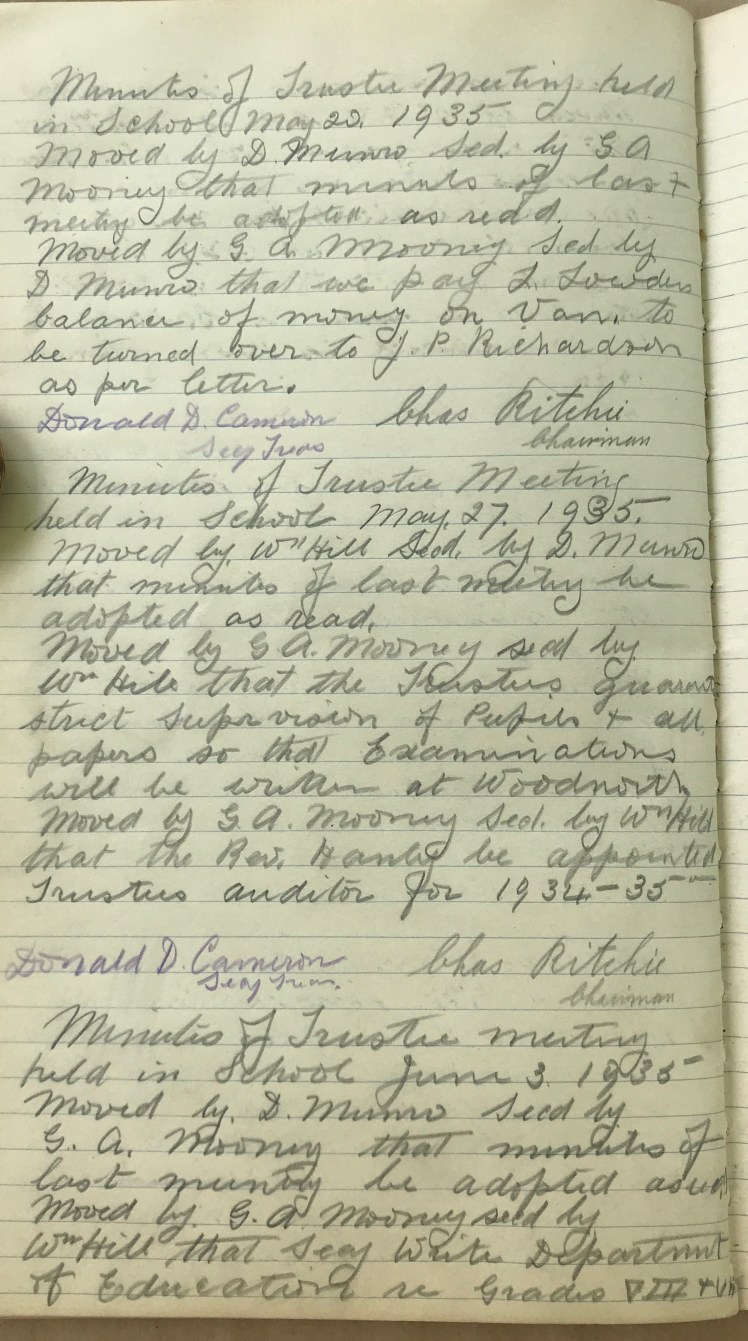 Minutes of Trustee Meeting held
in School May 20. 1935
Moved by D. Munro Sed. by G A
Mooney that minuts of last
meetng be adopted as read.
Moved by G. A. Mooney Sed by
D Munro that we pay L. Sowden
balance of money on Van. to
be turned over to J. P. Richardson
as per letter.
Donald D. Cameron Chas Ritchie
Secy Treas Chairman
Minutes of Trustee Meeting
held in School May. 27. 1935.
Moved by. Wm Hill Secd. by D. Munro
that minutes of last meeting be
adopted as read.
Moved by G A. Mooney secd by
Wm Hill that the Trustees guarant
strict Supervision of Pupils + all
papers so that Examinations
will be written at Woodnorth
Moved by G. A. Mooney Secd. by Wm Hill
that the Rev. Hanley be appointed
Trustees auditor for 1934-35
Donald D. Cameron Chas Ritchie
Secy Treas. Chairman
Minutes of Trustee meeting
held in School June 3. 1935
Moved by. D. Munro Secd by
G. A. Mooney that minutes of
last meeting be adopted as read
Moved by G. A. Mooney secd by
Wm Hill that Secy Write Department
of Education re Grades VIII +